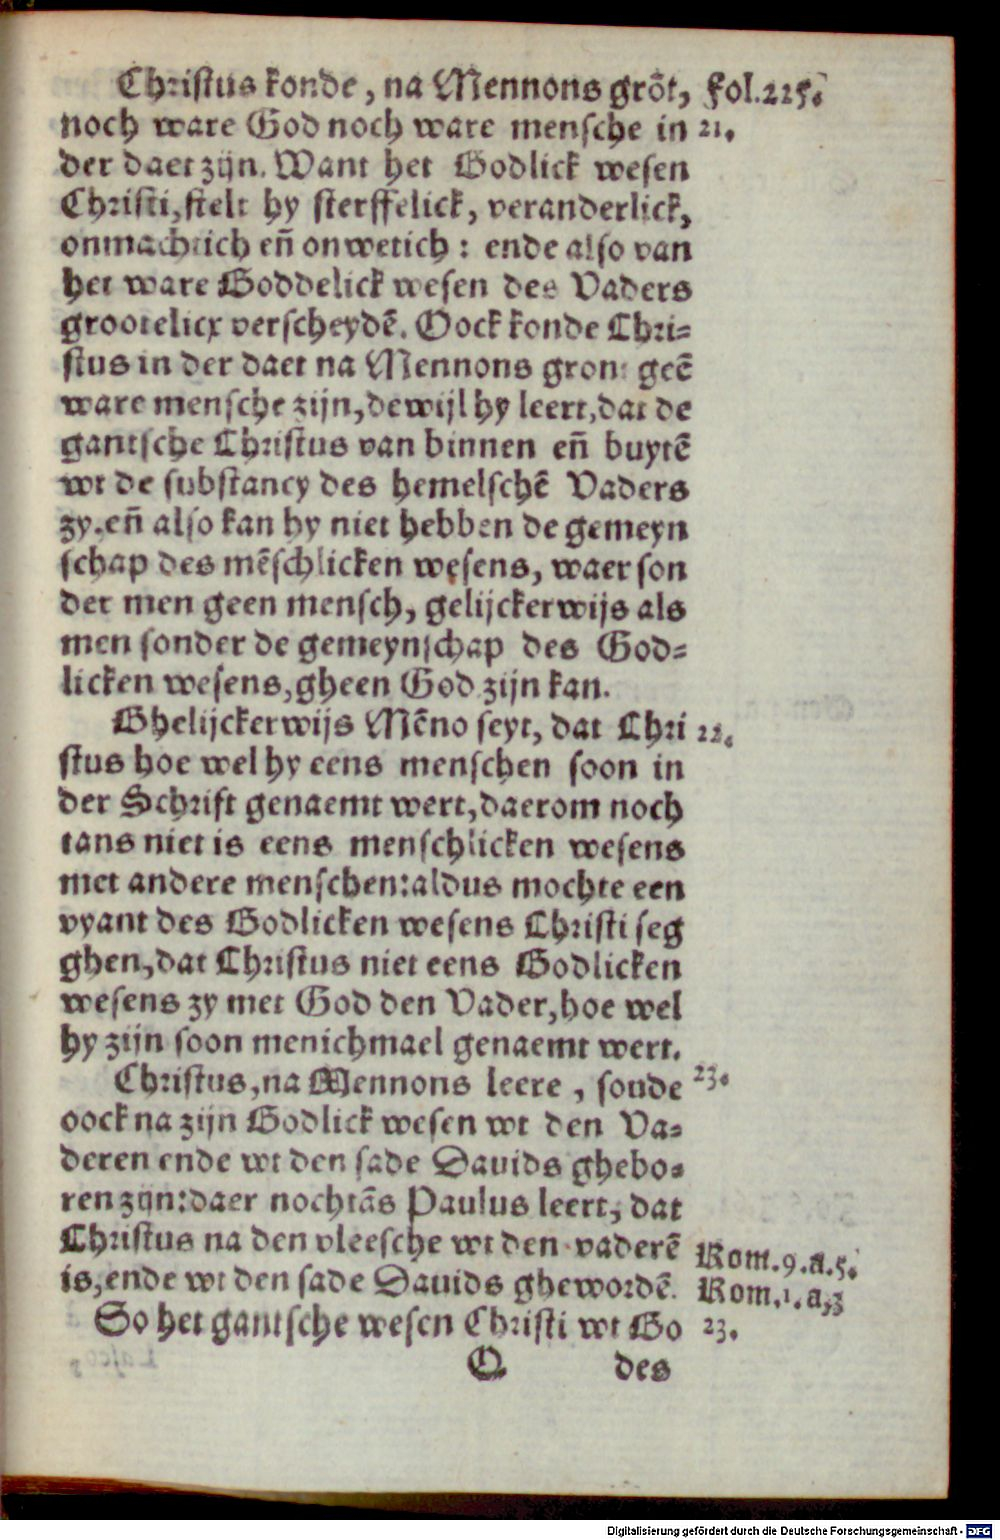 Christus konde, na Mennons grōt, Fol.225.
noch ware God noch ware mensche in 21.
der daet zijn. Want het Godlick wesen
Christi, stelt hy sterffelick, veranderlick,
onmachtich eñ onwetich: ende also van
het ware Goddelick wesen des Vaders
grootelicx verscheydē. Oock konde Chri-
stus in der daet na Mennons gront geē
ware mensche zijn, dewijl hy leert, dat de
gantsche Christus van binnen eñ buytē
wt de substancy des hemelschē Vaders
zy. eñ also kan hy niet hebben de gemeyn
schap des mēschlicken wesens, waer son
der men geen mensch, gelijckerwijs als
men sonder de gemeynschap des God-
licken wesens, gheen God zijn kan.
Ghelijckerwijs Mēno seyt, dat Chri 22.
stus hoe wel hy eens menschen soon in
der Schrift genaemt wert, daerom noch
tans niet is eens menschlicken wesens
met andere menschen: aldus mochte een
vyant des Godlicken wesens Christi seg
ghen, dat Christus niet eens Godlicken
wesens zy met God den Vader, hoe wel
hy zijn soon menichmael genaemt wert.
Christus, na Mennons leere, soude 23.
oock na zijn Godlick wesen wt den Va-
deren ende wt den sade Davids ghebo-
ren zijn: daer nochtās Paulus leert, dat
Christus na den vleesche wt den vaderē Rom.9.a.5.
is, ende wt den sade Dauids ghewordē. Rom.1.a,3
So het gantsche wesen Christi wt Go 23.
Q des
Digitalisierung gefördert durch die Deutsche Forschungsgemeinschaft - DFG